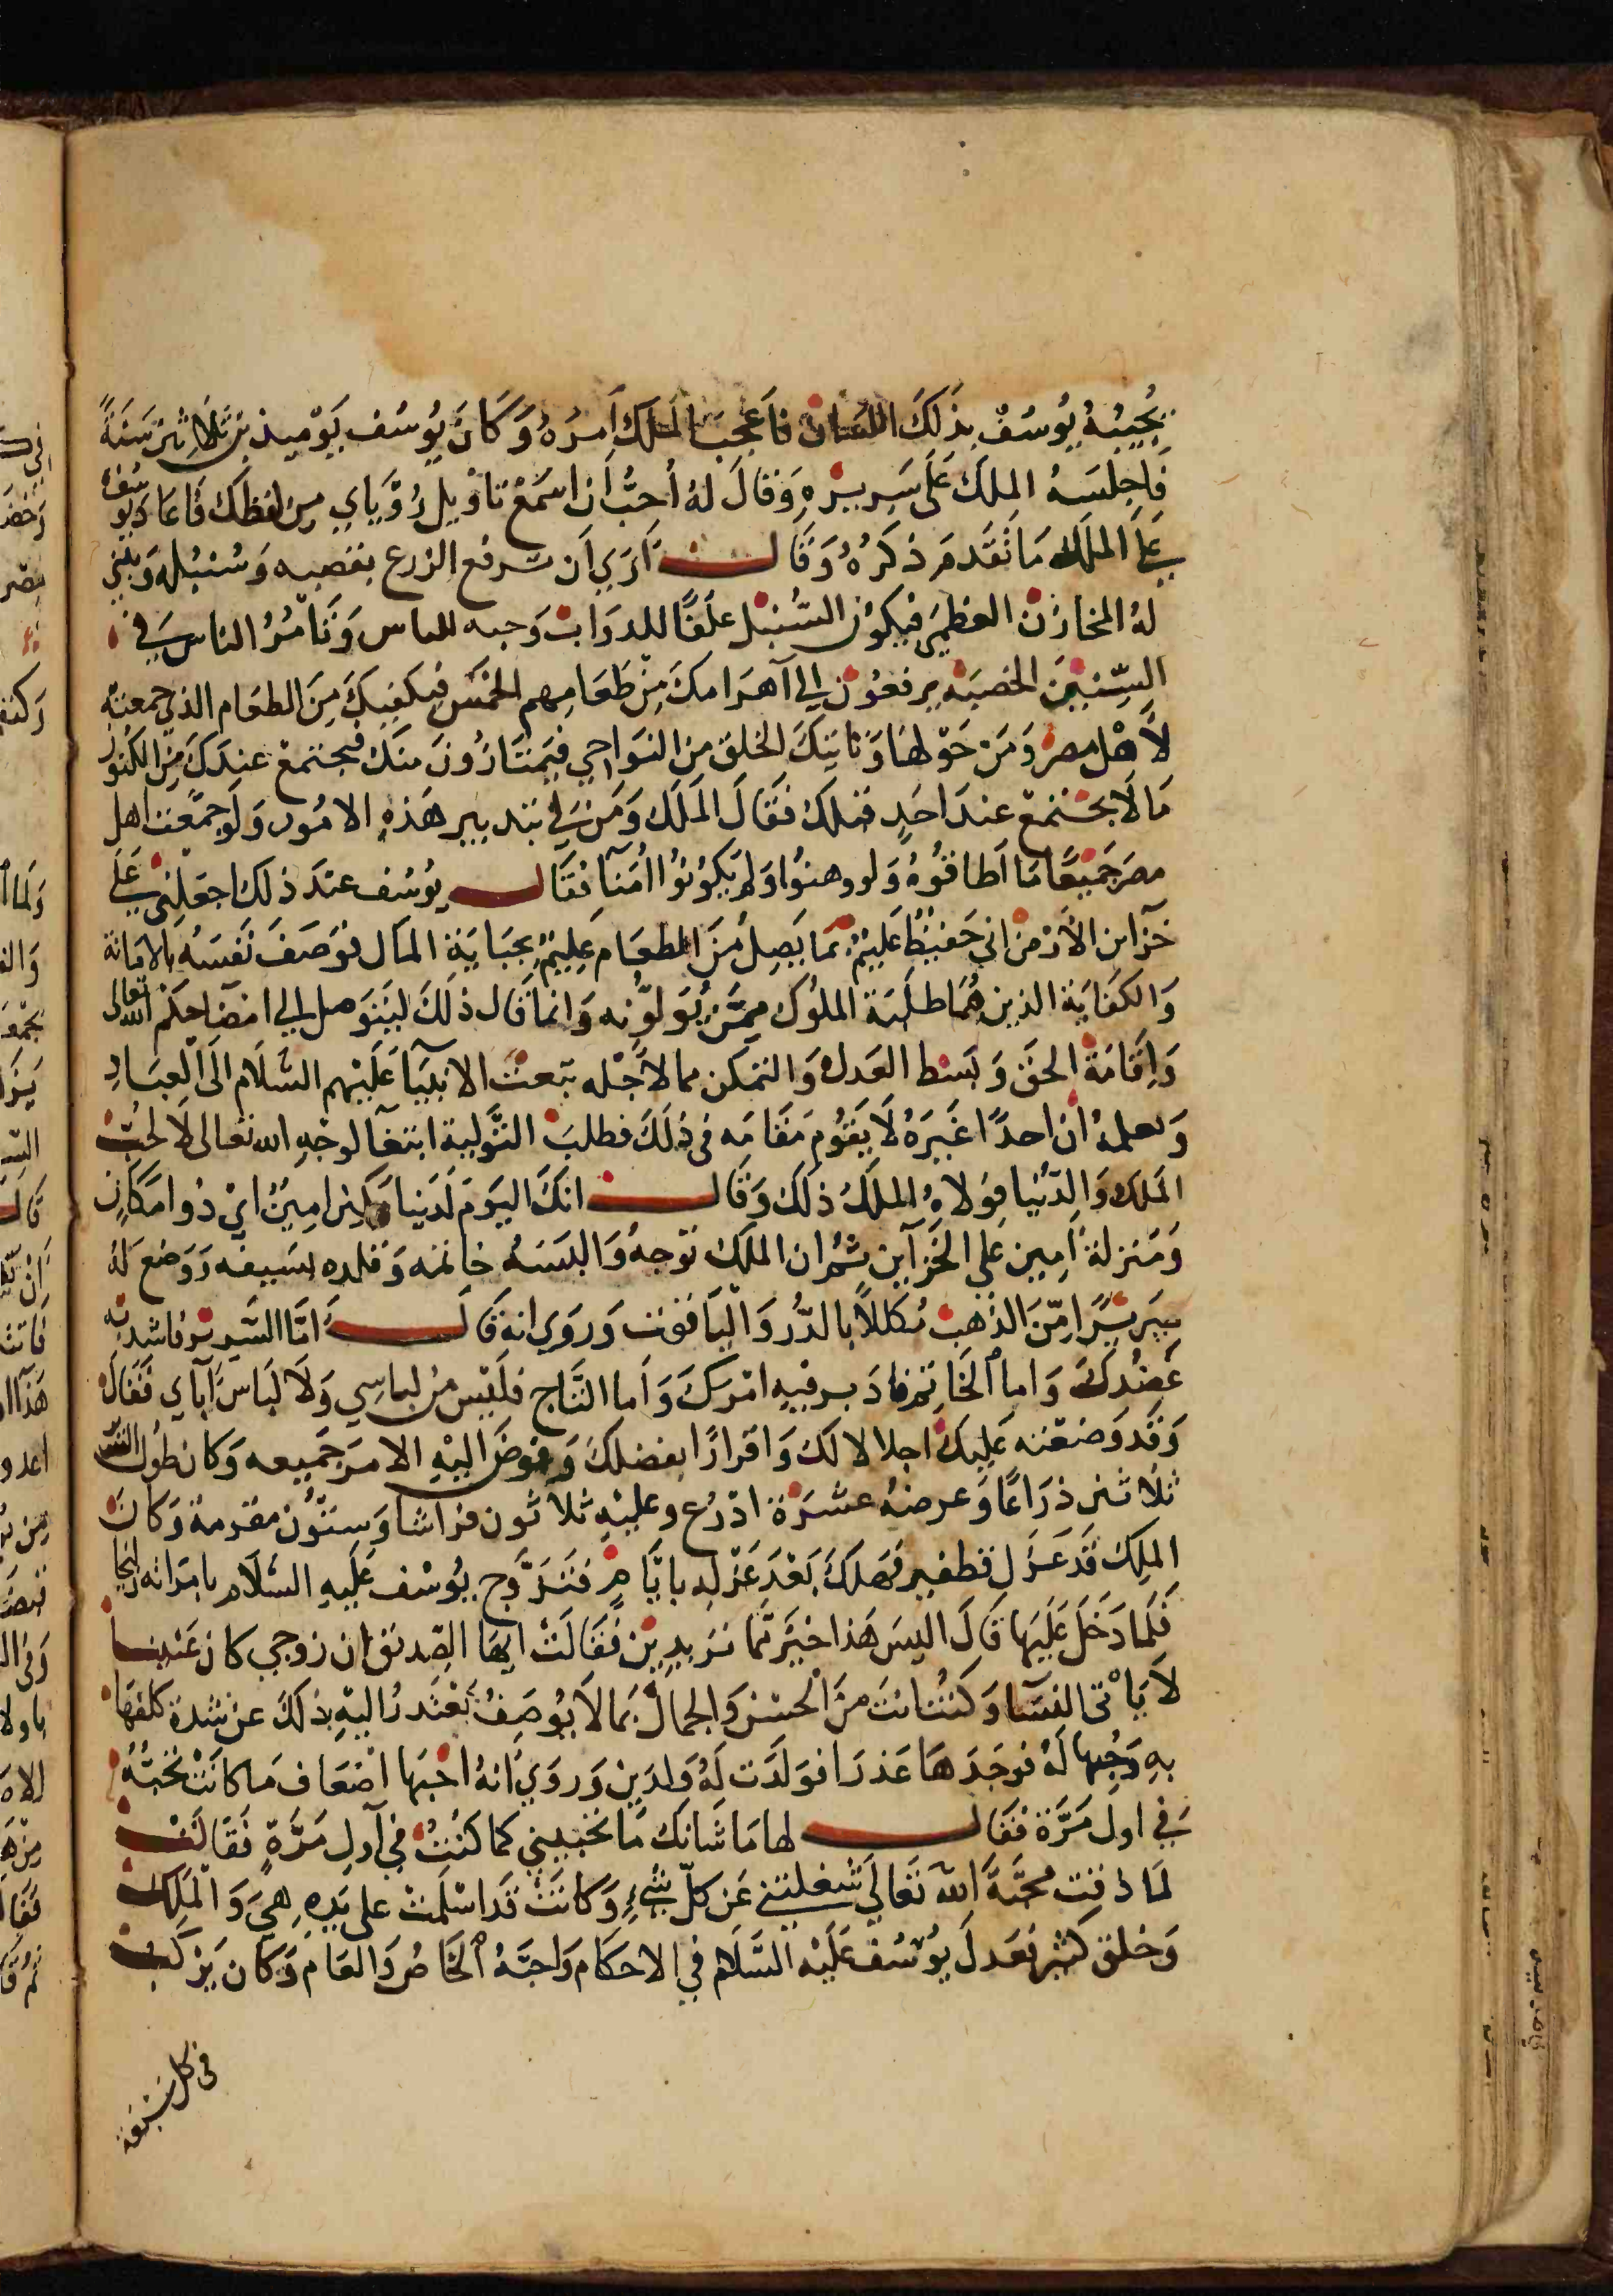 يُجِيبُهُ يُوسُفُ بذَلكَ اللسَان فاَعجَبَ الملكَ اَمرُهُ وَكَانَ يُوسُف يَوْميذ بن ثَلاثِينَ سَنَةً
فَاجلسَهُ الملكَ عَلَى سَريرْهِ وَقالَ لهُ اُحبُّ ان اسمَعْ تاوْيل رُوْيَاي من لفظك فاعَادَ يوسُفُ
عَلَى الملَك مَا تقدم ذكرُهُ وَقَالَــت اَرَي اَن ترفع الزرع بقصبه وَسُنبُله وَيبني
لهُ المخازن العظمَى فيكون السُنبل علَفًا للدوَاب وَحبه للناس وَتَامُرُ الناس في
السّنينَ الخصبَه يرفعُون الي آهرَامكَ مِنْ طَعَامِهم الخمس فيكفيكَ مِنَ الطعَام الذي جمعتهُ
لاَهْل مصرَ وَمَن حَوْلهَا وَتاتيكَ الخلق من النوَاحي فيَمتَارُونَ منكَ فيجتمعْ عندَكَ مِنَ الكنُوز
مَا لَا يجتمعْ عندَ احَدٍ قبلكَ فقَالَ الملَك وَمَن لي بتدبير هَذهِ الامُور وَلَو جمعت اهل
مصرَ جَميعًا مَا اَطاقوُهُ وَلو وهنوُا وَلم يَكُونوُا امَنآ فقَالــــ يوُسُف عندَ ذلك اجعَلني عَلَى
خزآين الأَرْض اني حَفيظٌ عَليمٌ بمَا يَصِلُ مِنَ الطعَام عَليمٌ بجبَايَةِ المَال فوَصَفَ نَفسَهُ بالامَانة
وَالكفايَة الذين هُمَا طلبَة الملوُك ممَّن يُوَلوُّنه وَانمَا قَال ذلكَ ليَتوَصل الي امضآ احكام الله تعالى
وَاِقَامَة الحقَ وَبَسْط العَدل وَالتمكن مما لاَجْله تبعث الانبيَآ عَلَيْهم السَّلَام الَى العبَادِ
وَلعلمهُ ان احدًا غَيرَهُ لَا يَقوُم مَقَامَه فى ذلَكَ فطلبَ التَّوليَة ابتغآ لوجْهِ الله تعالى لا لحُبّ
الملَك وَالدّنيا فوَلاهُ الملَكُ ذلكَ وَقَالَــــ انكَ اليَومَ لَدَينا مَكينٌ امِينٌ اي ذُوا مَكَانٍ
وَمَنزلة اَمِين علي الخزآين ثمُ ان الملَك توّجهُ وَالبسَهُ خاتمه وَقلده بسَيفه وَوَضعَ لهُ
سَريرًا مِّنَ الذهب مُكَللاً بالدُّر وَاليَاقوت وَرَوي انهِ قَالَــــ امَّا السَّرير فاشدبه
عضُدكَ وَاما الخاتم فادَبر فيهِ امْركَ وَأما التَّاج فلَيْس مِن لباسِي وَلَا لبَاسَ آبآي فقَالَ
وَقد وَضعْته عليكَ اجلالا لكَ وَاقرارًا بفضلكَ وَفوضَ اليْهِ الامرَ جَميعه وَكان طوُل السّ
ثلاثين ذرَاعًا وَعرضهُ عشرَة اذرُع وعليْهِ ثلاثون فراشا وَستُّون مقرمة وَكَانَ
الملِكَ قد عَزَل قطفير فهَلكَ بَعْدَ عَزلِه باياَّمٍ فتزَوَّج يوُسْف عَلَيهِ السَّلَام بامرَاته زليخا
فلَما دَخلَ عَلَيها قالَ اليسَ هَذا خَيرٌ مّما تريدين فقَالتْ ايهَا الصّديق اِن زوجي كان عَنينـــا
لَا يَاْتى النسَآ وَكُنتَ انتَ منَ الحُسْن وَالجمَالِ بمَا لَا يوُصَفُ تعْتَذرُ اليْهِ بذلكَ عن شدة كلفهَا
بهِ وَحُبها لهُ فوجَدَهَا عَذرَا فوَلدَت لهُ وَلدَينِ وَروَي انهُ احَبَها اضعَاف مَا كانَتْ تُحبّهُ
في اول مَرَّة فقَالـــــ لها مَا شَانكَ مَا تحبيني كما كُنتُ في آول مَرَّةٍ فقَالَتْـــ
لمَا ذقت محبَّةَ اللهِ تعَالَى شغلتني عَن كلّ شيءٍ وَكانَتْ قدَ اسْلمَتْ على يَدهِ هيَ وَالملِكــ
وَخلق كثير فعَدلَ يوُسُف عَلَيْه السَّلَام في الاحكَام وَاحبَّهُ الخاصُ وَالعَام وَكان يَركبُ
فى كل سَبعة